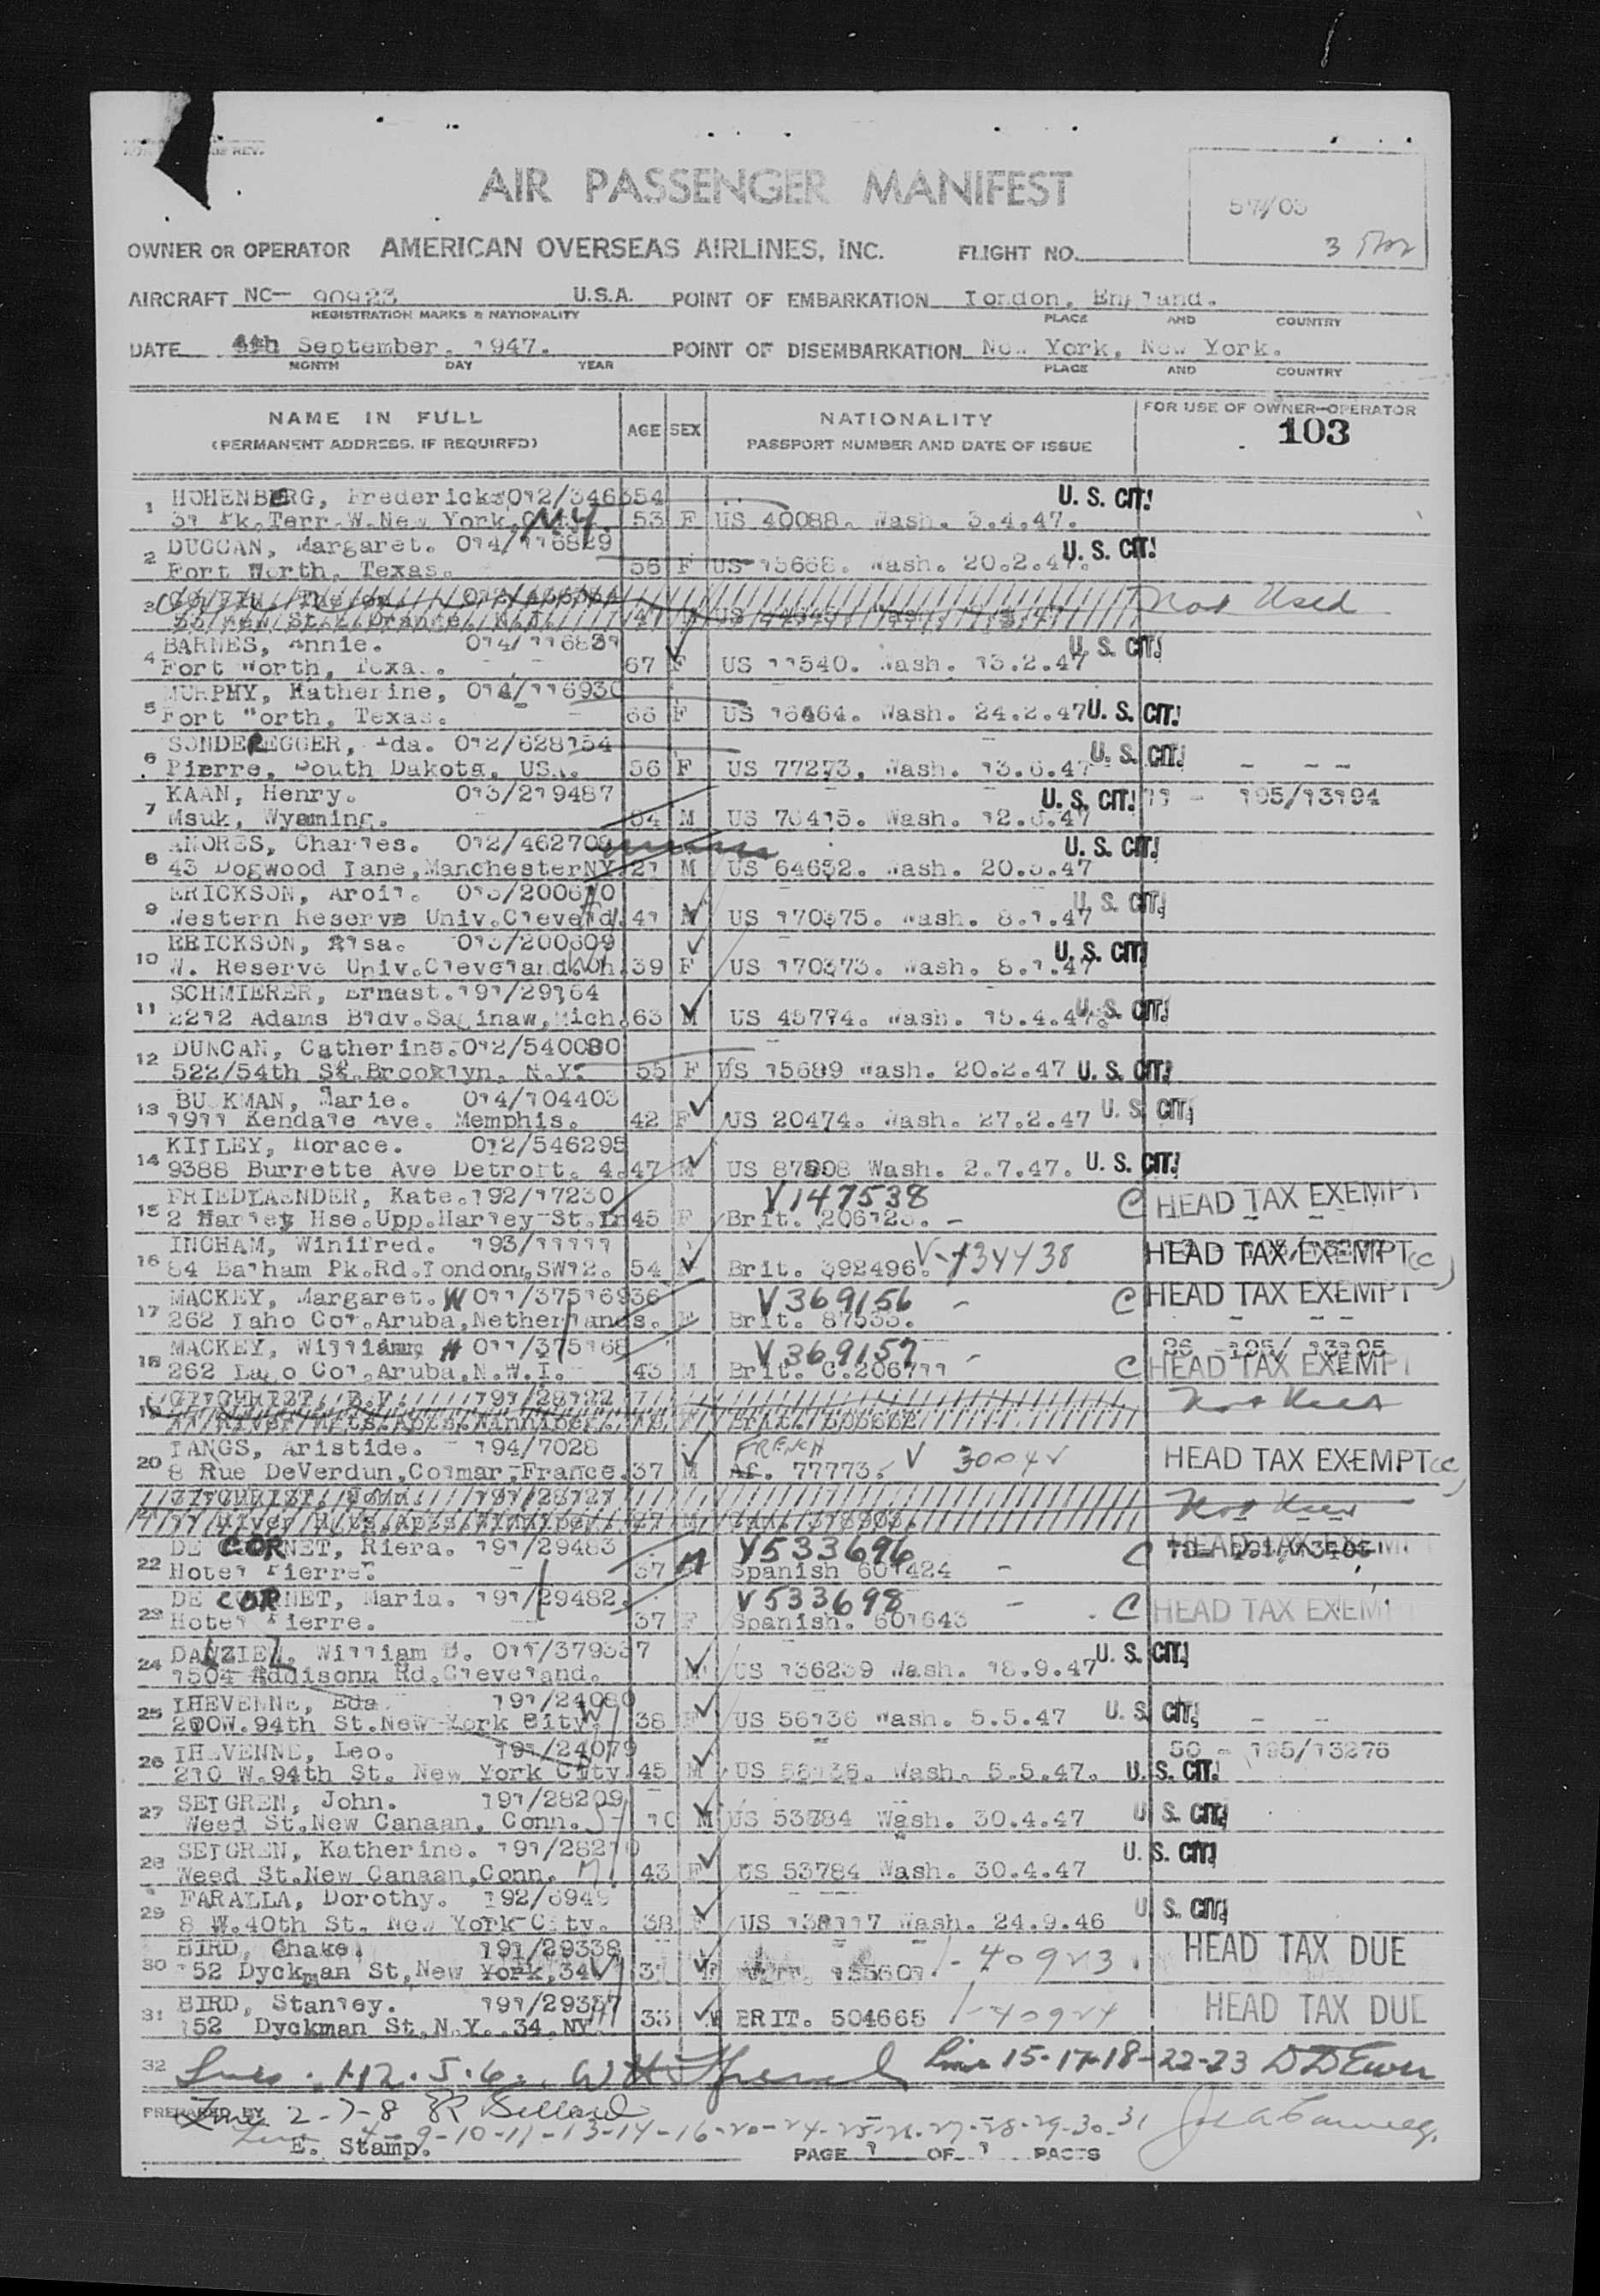 AIR PASSENGER MANIFEST
3
OWNER OR OPERATOR AMERICAN OVERSEAS AIRLINES, INC. FLIGHT NO.
AIRCRAFT NC- 90923 U.S.A. POINT OF EMBARKATION London, England.
REGISTRATION MARKS & NATIONALITY PLACE AND COUNTRY
DATE September, 1947. POINT OF DISEMBARKATION New York, New York.
MONTH DAY YEAR PLACE AND COUNTRY
NAME IN FULL AGE SEX NATIONALITY FOR USE OF OWNER-OPERATOR
(PERMANENT ADDRESS, IF REQUIRED) PASSPORT NUMBER AND DATE OF ISSUE 103
1 HOHENBERG, Frederick 012/346354 U. S. CIT.
Pk.Terr.W.New York, NY. 53 F US 40088. Wash. 3.4.47.
2 DUGGAN, Margaret. 014/116829 U. S. CIT.
Fort Worth, Texas. 56 F US 15668. Wash. 20.2.47.
3 Not Used
BARNES, Annie. 014/116831 U. S. CIT.
4 Fort Worth, Texas. 67 F US 11540. Wash. 13.2.47
MURPHY, Katherine, 014/116930
5 Fort Worth, Texas. 66 F US 16464. Wash. 24.2.47 U. S. CIT.
SONDEREGGER, Ida. 012/628154 U. S. CIT.
6 Pierre, South Dakota, USA. 56 F US 77273, Wash. 13.6.47
KAAN, Henry. 013/219487 U. S. CIT. 11 - 195/13194
7 Msuk, Wyaming. 54 M US 76415. Wash. 12.6.47
AMORES, Charles. 012/462709 U. S. CIT.
8 43 Dogwood Lane,Manchester NY 21 M US 64632. Wash. 20.5.47
ERICKSON, Aroll. 013/200610 U. S. CIT.
9 Western Reserve Univ.Cleveld. 41 M US 170375. Wash. 8.1.47
ERICKSON, Elsa. 013/200609 U. S. CIT.
10 W. Reserve Univ.Cleveland.Oh. 39 F US 170373. Wash. 8.1.47
SCHMIERER, Ernest. 191/29164
11 2212 Adams Bldv.Saginaw,Mich. 63 M US 45774. Wash. 15.4.47. U. S. CIT.
DUNCAN, Catherine. 012/540080
12 522/54th St.Brooklyn, N.Y. 55 F US 15689 Wash. 20.2.47 U. S. CIT.
Marie. 014/104403
13 1911 Kendale Ave. Memphis. 42 F US 20474. Wash. 27.2.47 U. S. CIT.
KITLEY, Horace. 012/546295
14 9388 Burrette Ave Detroit. 4. 47 M US 87808 Wash. 2.7.47. U. S. CIT.
FRIEDLAENDER, Kate. 192/17230 V147538 C HEAD TAX EXEMPT
15 2 Harley Hse.Upp.Harley St.Ln 45 F Brit. 206123.
INGHAM, Winifred. 193/11111 V-134438 HEAD TAX EXEMPT (C)
16 84 Balham Pk.Rd.London,SW12. 54 Brit. 392496.
MACKEY, Margaret. W 011/37516936 V369156 C HEAD TAX EXEMPT
17 262 Laho Col.Aruba,Netherlands. F Brit. 87533.
MACKEY, William, H 011/375168 V369157 26 - 195/ 13195
18 262 Lago Col.Aruba,N.W.I. 43 M Brit. C.206711 C HEAD TAX EXEMPT
19 GILCHRIST, 191/28122 Not Used
LANGS, Aristide. 194/7028 FRENCH
20 8 Rue DeVerdun,Colmar,France. 37 M Af. 77773. V 30044 HEAD TAX EXEMPT (C)
GILCHRIST, John. 191/28121 Not Used
DE CORNET, Riera. 191/29483 V533696 C HEAD TAX EXEMPT
22 Hotel Pierre. 37 M Spanish 601424
DE CORNET, Maria. 191/29482. V533698 C HEAD TAX EXEMPT
23 Hotel Pierre. 37 F Spanish. 601643
DANZIEL, William B. 011/379337 U. S. CIT.
24 1504 Addisonn Rd.Cleveland. M US 136239 Wash. 18.9.47
THEVENNE, Eda 191/24080
25 210W.94th St.New York City. 38 F US 56136 Wash. 5.5.47 U. S. CIT.
THEVENNE, Leo. 191/24079 50 - 195/13276
26 210 W.94th St. New York City 45 M US 56135. Wash. 5.5.47. U. S. CIT.
SELGREN, John. 191/28209
27 Weed St.New Canaan, Conn. M US 53784 Wash. 30.4.47 U. S. CIT.
SELGREN, Katherine. 191/28210 U. S. CIT.
28 Weed St.New Canaan,Conn. 43 F US 53784 Wash. 30.4.47
FARALLA, Dorothy. 192/6949 U. S. CIT.
29 8 W.40th St. New York City. 38 F US 138117 Wash. 24.9.46
BIRD, Chake. 191/29338 HEAD TAX DUE
30 152 Dyckman St,New York,34 155601. 1-40923
BIRD, Stanley. 191/29337 HEAD TAX DUE
31 152 Dyckman St.N.Y. 34,NY. 33 M BRIT. 504665 1-40924
32 Lines 1-12-5-6. Line 15-17-18-22-23 D D Ewen
PREPARED BY Line 2-7-8
Line 4-9-10-11-13-14-16-20-24-25-26-27-28-29-30-31
E. Stamp. PAGE 1 OF 1 PAGES